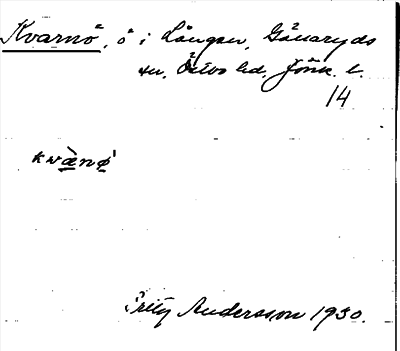 Kvarnö, ö i Lången, Gällaryds
sn. Östbo hd. Jönk. l.
14
kwä̀nø'
Fritz Andersson 1930.